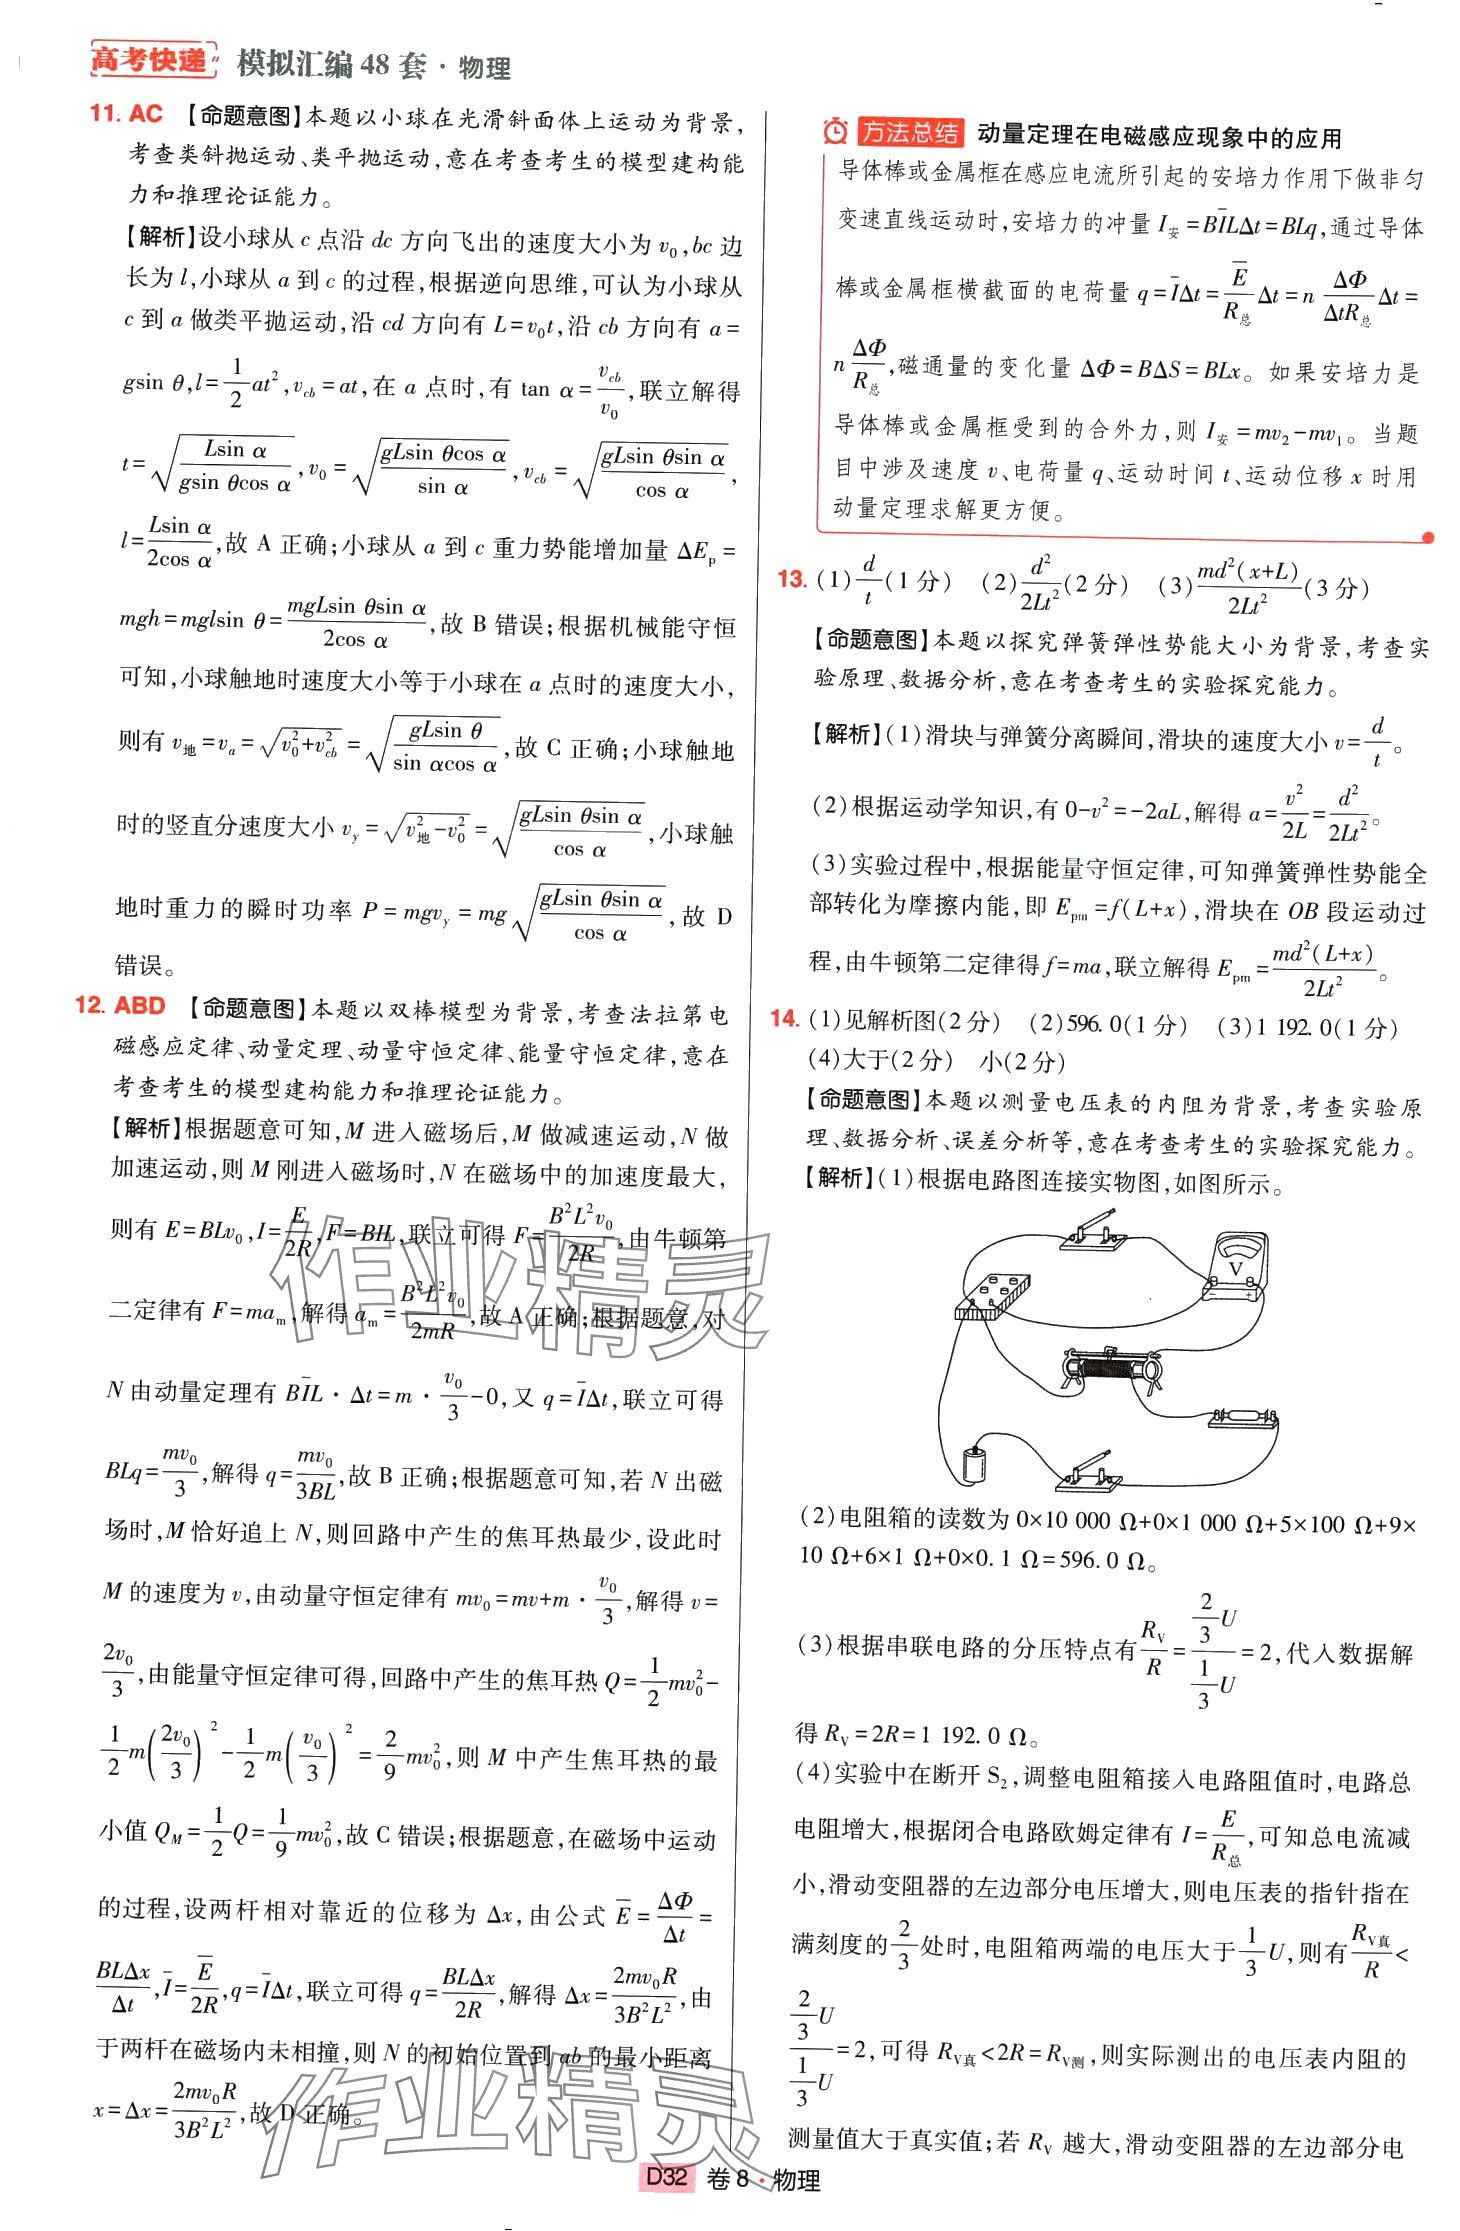 高考快递 模拟汇编 48 套·物理
11. AC 【命题意图】本题以小球在光滑斜面体上运动为背景,
考查类斜抛运动、类平抛运动,意在考查考生的模型建构能
力和推理论证能力。
【解析】设小球从 c 点沿 dc 方向飞出的速度大小为 v₀,bc 边
长为 l,小球从 a 到 c 的过程,根据逆向思维,可认为小球从
c 到 a 做类平抛运动,沿 cd 方向有 L=v₀t,沿 cb 方向有 a=
gsin θ,l=\frac{1}{2}at²,v_{cb}=at,在 a 点时,有 tan α=\frac{v_{cb}}{v₀},联立解得
t=\sqrt{\frac{Lsin α}{gsin θcos α}},v₀=\sqrt{\frac{gLsin θcos α}{sin α}},v_{cb}=\sqrt{\frac{gLsin θsin α}{cos α}},
l=\frac{Lsin α}{2cos α},故 A 正确;小球从 a 到 c 重力势能增加量 ΔE_p=
mgh=mglsin θ=\frac{mgLsin θsin α}{2cos α},故 B 错误;根据机械能守恒
可知,小球触地时速度大小等于小球在 a 点时的速度大小,
则有 v_地=v_a=\sqrt{v₀²+v_{cb}²}=\sqrt{\frac{gLsin θ}{sin αcos α}},故 C 正确;小球触地
时的竖直分速度大小 v_y=\sqrt{v_地²-v₀²}=\sqrt{\frac{gLsin θsin α}{cos α}},小球触
地时重力的瞬时功率 P=mgv_y=mg\sqrt{\frac{gLsin θsin α}{cos α}},故 D
错误。
12. ABD 【命题意图】本题以双棒模型为背景,考查法拉第电
磁感应定律、动量定理、动量守恒定律、能量守恒定律,意在
考查考生的模型建构能力和推理论证能力。
【解析】根据题意可知,M 进入磁场后,M 做减速运动,N 做
加速运动,则 M 刚进入磁场时,N 在磁场中的加速度最大,
则有 E=BLv₀,I=\frac{E}{2R},F=BIL,联立可得 F=\frac{B²L²v₀}{2R},由牛顿第
二定律有 F=ma_m,解得 a_m=\frac{B²L²v₀}{2mR},故 A 正确;根据题意,对
N 由动量定理有 B\bar{I}L·Δt=m·\frac{v₀}{3}-0,又 q=\bar{I}Δt,联立可得
BLq=\frac{mv₀}{3},解得 q=\frac{mv₀}{3BL},故 B 正确;根据题意可知,若 N 出磁
场时,M 恰好追上 N,则回路中产生的焦耳热最少,设此时
M 的速度为 v,由动量守恒定律有 mv₀=mv+m·\frac{v₀}{3},解得 v=
\frac{2v₀}{3},由能量守恒定律可得,回路中产生的焦耳热 Q=\frac{1}{2}mv₀²-
\frac{1}{2}m(\frac{2v₀}{3})²-\frac{1}{2}m(\frac{v₀}{3})²=\frac{2}{9}mv₀²,则 M 中产生焦耳热的最
小值 Q_M=\frac{1}{2}Q=\frac{1}{9}mv₀²,故 C 错误;根据题意,在磁场中运动
的过程,设两杆相对靠近的位移为 Δx,由公式 \bar{E}=\frac{ΔΦ}{Δt}=
\frac{BLΔx}{Δt},\bar{I}=\frac{\bar{E}}{2R},q=\bar{I}Δt,联立可得 q=\frac{BLΔx}{2R},解得 Δx=\frac{2mv₀R}{3B²L²},由
于两杆在磁场内未相撞,则 N 的初始位置到 ab 的最小距离
x=Δx=\frac{2mv₀R}{3B²L²},故 D 正确。
方法总结 动量定理在电磁感应现象中的应用
导体棒或金属框在感应电流所引起的安培力作用下做非匀
变速直线运动时,安培力的冲量 I_安=B\bar{I}LΔt=BLq,通过导体
棒或金属框横截面的电荷量 q=\bar{I}Δt=\frac{\bar{E}}{R_总}Δt=n\frac{ΔΦ}{ΔtR_总}Δt=
n\frac{ΔΦ}{R_总},磁通量的变化量 ΔΦ=BΔS=BLx。如果安培力是
导体棒或金属框受到的合外力,则 I_安=mv₂-mv₁。当题
目中涉及速度 v、电荷量 q、运动时间 t、运动位移 x 时用
动量定理求解更方便。
13. (1)\frac{d}{t}(1 分) (2)\frac{d²}{2Lt²}(2 分) (3)\frac{md²(x+L)}{2Lt²}(3 分)
【命题意图】本题以探究弹簧弹性势能大小为背景,考查实
验原理、数据分析,意在考查考生的实验探究能力。
【解析】(1)滑块与弹簧分离瞬间,滑块的速度大小 v=\frac{d}{t}。
(2)根据运动学知识,有 0-v²=-2aL,解得 a=\frac{v²}{2L}=\frac{d²}{2Lt²}。
(3)实验过程中,根据能量守恒定律,可知弹簧弹性势能全
部转化为摩擦内能,即 E_{pm}=f(L+x),滑块在 OB 段运动过
程,由牛顿第二定律得 f=ma,联立解得 E_{pm}=\frac{md²(L+x)}{2Lt²}。
14. (1)见解析图(2 分) (2)596.0(1 分) (3)1 192.0(1 分)
(4)大于(2 分) 小(2 分)
【命题意图】本题以测量电压表的内阻为背景,考查实验原
理、数据分析、误差分析等,意在考查考生的实验探究能力。
【解析】(1)根据电路图连接实物图,如图所示。
V
(2)电阻箱的读数为 0×10 000 Ω+0×1 000 Ω+5×100 Ω+9×
10 Ω+6×1 Ω+0×0.1 Ω=596.0 Ω。
(3)根据串联电路的分压特点有\frac{R_V}{R}=\frac{\frac{2}{3}U}{\frac{1}{3}U}=2,代入数据解
得 R_V=2R=1 192.0 Ω。
(4)实验中在断开 S₂,调整电阻箱接入电路阻值时,电路总
电阻增大,根据闭合电路欧姆定律有 I=\frac{E}{R_总},可知总电流减
小,滑动变阻器的左边部分电压增大,则电压表的指针指在
满刻度的\frac{2}{3}处时,电阻箱两端的电压大于\frac{1}{3}U,则有\frac{R_{V真}}{R}<
\frac{\frac{2}{3}U}{\frac{1}{3}U}=2,可得 R_{V真}<2R=R_{V测},则实际测出的电压表内阻的
测量值大于真实值;若 R_V 越大,滑动变阻器的左边部分电
D32 卷 8·物理
作业精灵
作业精灵